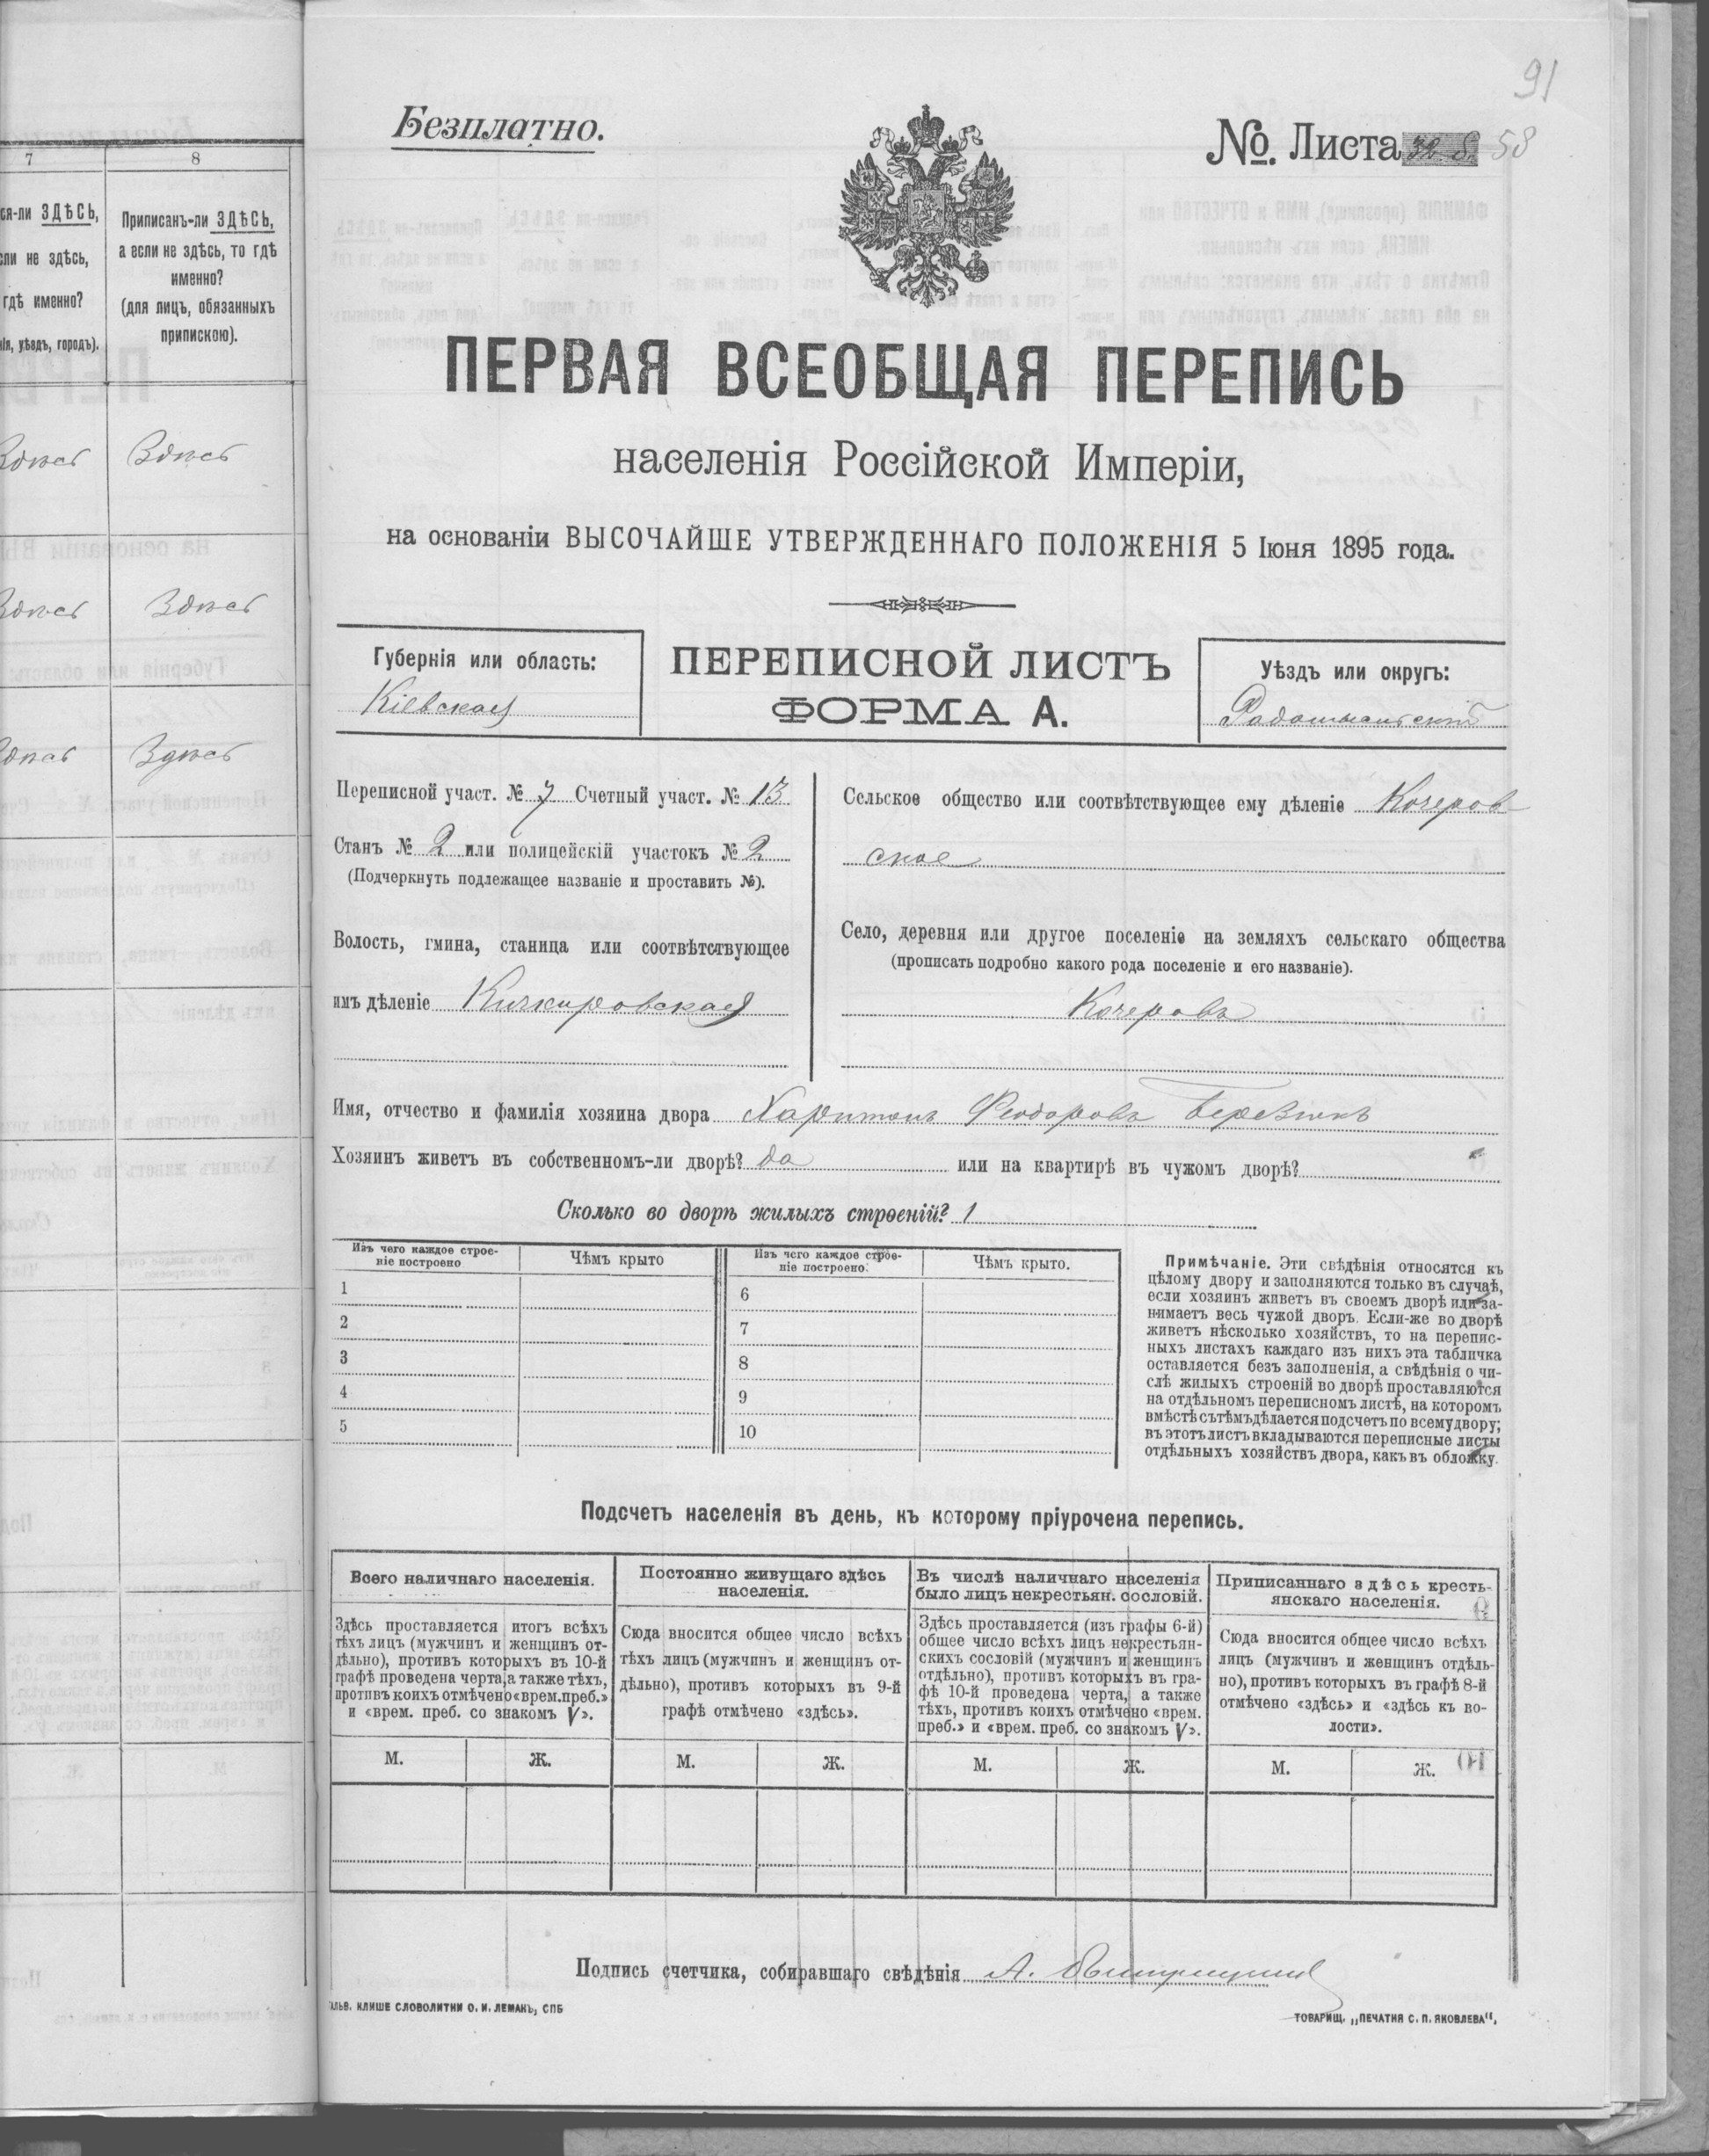 91
Безплатно.
№ Листа 58
7
8
ся-ли ЗДѢСЬ,
сли не здѣсь,
гдѣ именно?
ія, уѣздъ, городъ).
Приписанъ-ли ЗДѢСЬ,
а если не здѣсь, то гдѣ
именно?
(для лицъ, обязанныхъ
припискою).
Здѣсь Здѣсь
Здѣсь Здѣсь
Здѣсь Здѣсь
ПЕРВАЯ ВСЕОБЩАЯ ПЕРЕПИСЬ
населенія Россійской Имперіи,
на основаніи ВЫСОЧАЙШЕ УТВЕРЖДЕННАГО ПОЛОЖЕНІЯ 5 Іюня 1895 года.
Губернія или область:
Кіевская
ПЕРЕПИСНОЙ ЛИСТЪ
ФОРМА А.
Уѣздъ или округъ:
Радомысльскій
Переписной участ. № 7 Счетный участ. № 13
Станъ № 2 или полицейскій участокъ № 2
(Подчеркнуть подлежащее названіе и проставить №).
Волость, гмина, станица или соотвѣтствующее
имъ дѣленіе Кичкировская
Сельское общество или соотвѣтствующее ему дѣленіе Кочеров
ское
Село, деревня или другое поселеніе на земляхъ сельскаго общества
(прописать подробно какого рода поселеніе и его названіе).
Кочеровъ
Имя, отчество и фамилія хозяина двора Харитонъ Феодоровъ
Хозяинъ живетъ въ собственномъ-ли дворѣ? да или на квартирѣ въ чужомъ дворѣ?
Сколько во дворѣ жилыхъ строеній? 1
Изъ чего каждое строе-
ніе построено
Чѣмъ крыто
Изъ чего каждое строе-
ніе построено.
Чѣмъ крыто.
1
2
3
4
5
6
7
8
9
10
Примѣчаніе. Эти свѣдѣнія относятся къ
цѣлому двору и заполняются только въ случаѣ,
если хозяинъ живетъ въ своемъ дворѣ или за-
нимаетъ весь чужой дворъ. Если-же во дворѣ
живетъ нѣсколько хозяйствъ, то на перепис-
ныхъ листахъ каждаго изъ нихъ эта табличка
оставляется безъ заполненія, а свѣдѣнія о чи-
слѣ жилыхъ строеній во дворѣ проставляются
на отдѣльномъ переписномъ листѣ, на которомъ
вмѣстѣ съ тѣмъ дѣлается подсчетъ по всему двору;
въ этотъ листъ вкладываются переписные листы
отдѣльныхъ хозяйствъ двора, какъ въ обложку.
Подсчетъ населенія въ день, къ которому пріурочена перепись.
Всего наличнаго населенія.
Здѣсь проставляется итогъ всѣхъ
тѣхъ лицъ (мужчинъ и женщинъ от-
дѣльно), противъ которыхъ въ 10-й
графѣ проведена черта, а также тѣхъ,
противъ коихъ отмѣчено «врем. преб.»
и «врем. преб. со знакомъ V».
М. Ж.
Постоянно живущаго здѣсь
населенія.
Сюда вносится общее число всѣхъ
тѣхъ лицъ (мужчинъ и женщинъ от-
дѣльно), противъ которыхъ въ 9-й
графѣ отмѣчено «здѣсь».
М. Ж.
Въ числѣ наличнаго населенія
было лицъ некрестьян. сословій.
Здѣсь проставляется (изъ графы 6-й)
общее число всѣхъ лицъ некрестьян-
скихъ сословій (мужчинъ и женщинъ
отдѣльно), противъ которыхъ въ гра-
фѣ 10-й проведена черта, а также
тѣхъ, противъ коихъ отмѣчено «врем.
преб.» и «врем. преб. со знакомъ V».
М. Ж.
Приписаннаго здѣсь кресть-
янскаго населенія.
Сюда вносится общее число всѣхъ
лицъ (мужчинъ и женщинъ отдѣль-
но), противъ которыхъ въ графѣ 8-й
отмѣчено «здѣсь» и «здѣсь къ во-
лости».
М. Ж.
Подпись счетчика, собиравшаго свѣдѣнія А.
ГАЛЬВ. КЛИШЕ СЛОВОЛИТНИ О. И. ЛЕМАНЪ, СПБ
ТОВАРИЩ. „ПЕЧАТНЯ С. П. ЯКОВЛЕВА“,